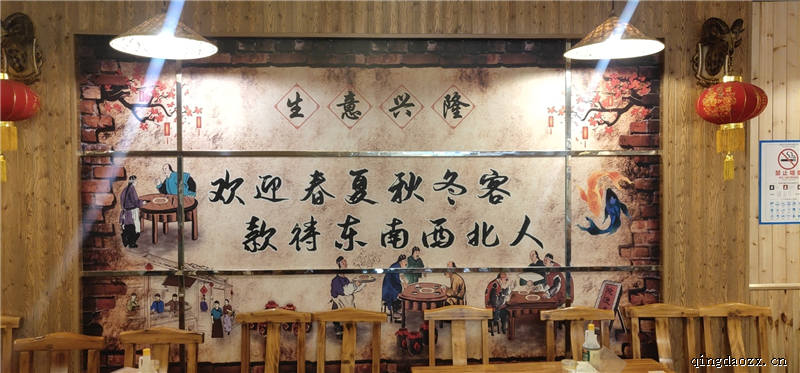 生意兴隆
欢迎春夏秋冬客
款待东南西北人
禁止吸烟
qingdaozx.cn